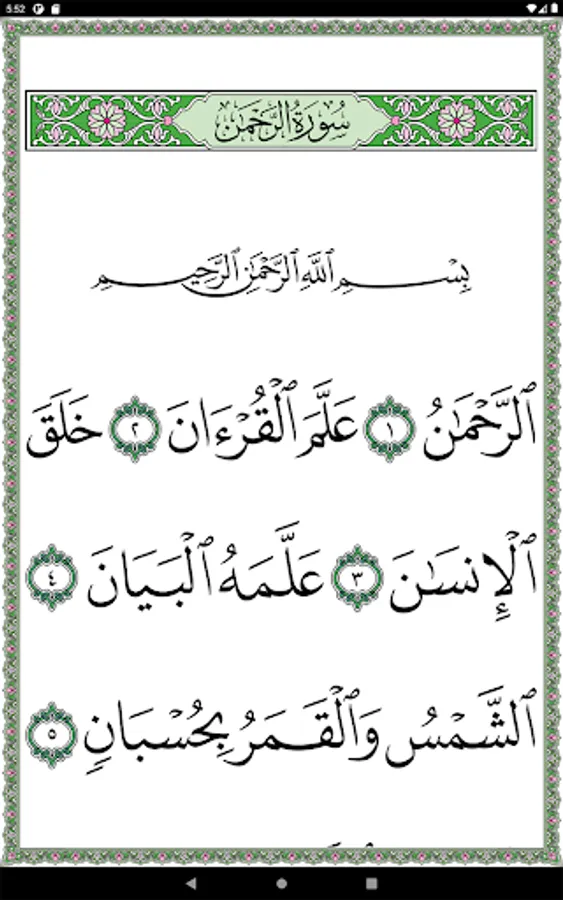 5:52
سُورَةُ الرَّحْمَٰن
بِسْمِ ٱللَّهِ ٱلرَّحْمَٰنِ ٱلرَّحِيمِ
ٱلرَّحْمَٰنُ ١ عَلَّمَ ٱلْقُرْءَانَ ٢ خَلَقَ
ٱلْإِنسَٰنَ ٣ عَلَّمَهُ ٱلْبَيَانَ ٤
ٱلشَّمْسُ وَٱلْقَمَرُ بِحُسْبَانٍ ٥